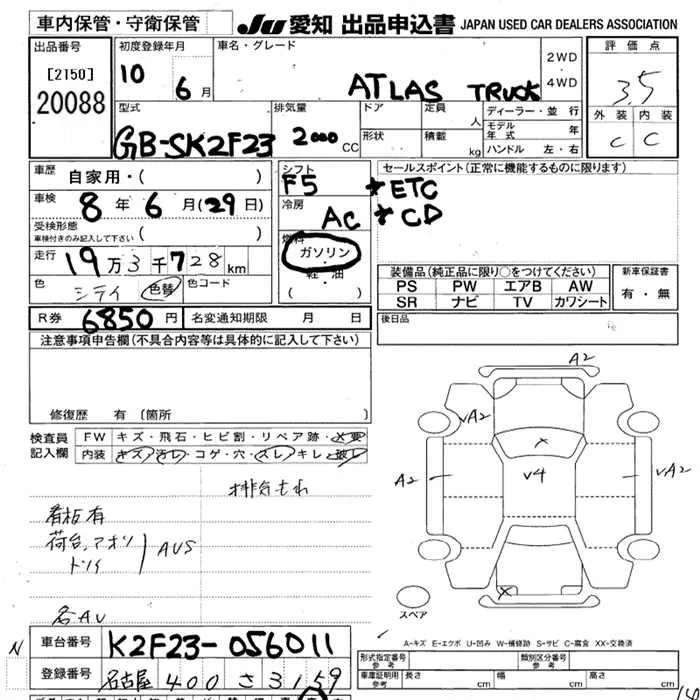 車内保管・守衛保管 JU 愛知 出品申込書 JAPAN USED CAR DEALERS ASSOCIATION
出品番号 初度登録年月 車名・グレード 評価点
[2150] 10 6月 ATLAS TRUCK 2WD 4WD 3.5
20088
型式 排気量 ドア 定員 人 ディーラー・並行 外装 内装
GB-SK2F23 2000 CC 形状 積載 kg モデル年式 年 C C
ハンドル 左・右
車歴 自家用・( ) シフト F5 セールスポイント(正常に機能するものに限ります)
車検 8年6月(29日) 冷房 AC *ETC
受検形態 *CD
車検付きのみ記入して下さい ( ) 燃料 ガソリン
走行 19万3千728km 軽・油
( ・ )
装備品(純正品に限り○をつけてください) 新車保証書
色 シティ 色替 色コード PS PW エアB AW 有・無
SR ナビ TV カワシート
R券 6850円 名変通知期限 月 日 後日品
注意事項申告欄(不具合内容等は具体的に記入して下さい)
修復歴 有(箇所
検査員 記入欄 FW キズ・飛石・ヒビ割・リペア跡・X要
内装 キズ・汚レ・コゲ・穴・スレ・キレ・破レ
A2
VA2
A2 V4 VA2
X
X
スペア
排気もれ
看板有
荷台、アオリ
トリイ
AUS
各AU
N
A-キズ E-エクボ U-凹み W-補修跡 S-サビ C-腐食 XX-交換済
車台番号 K2F23-056011
登録番号 名古屋 400 さ 3159
形式指定番号 参考 類別区分番号 参考
車庫証明用 参考 長さ cm 幅 cm 高さ cm